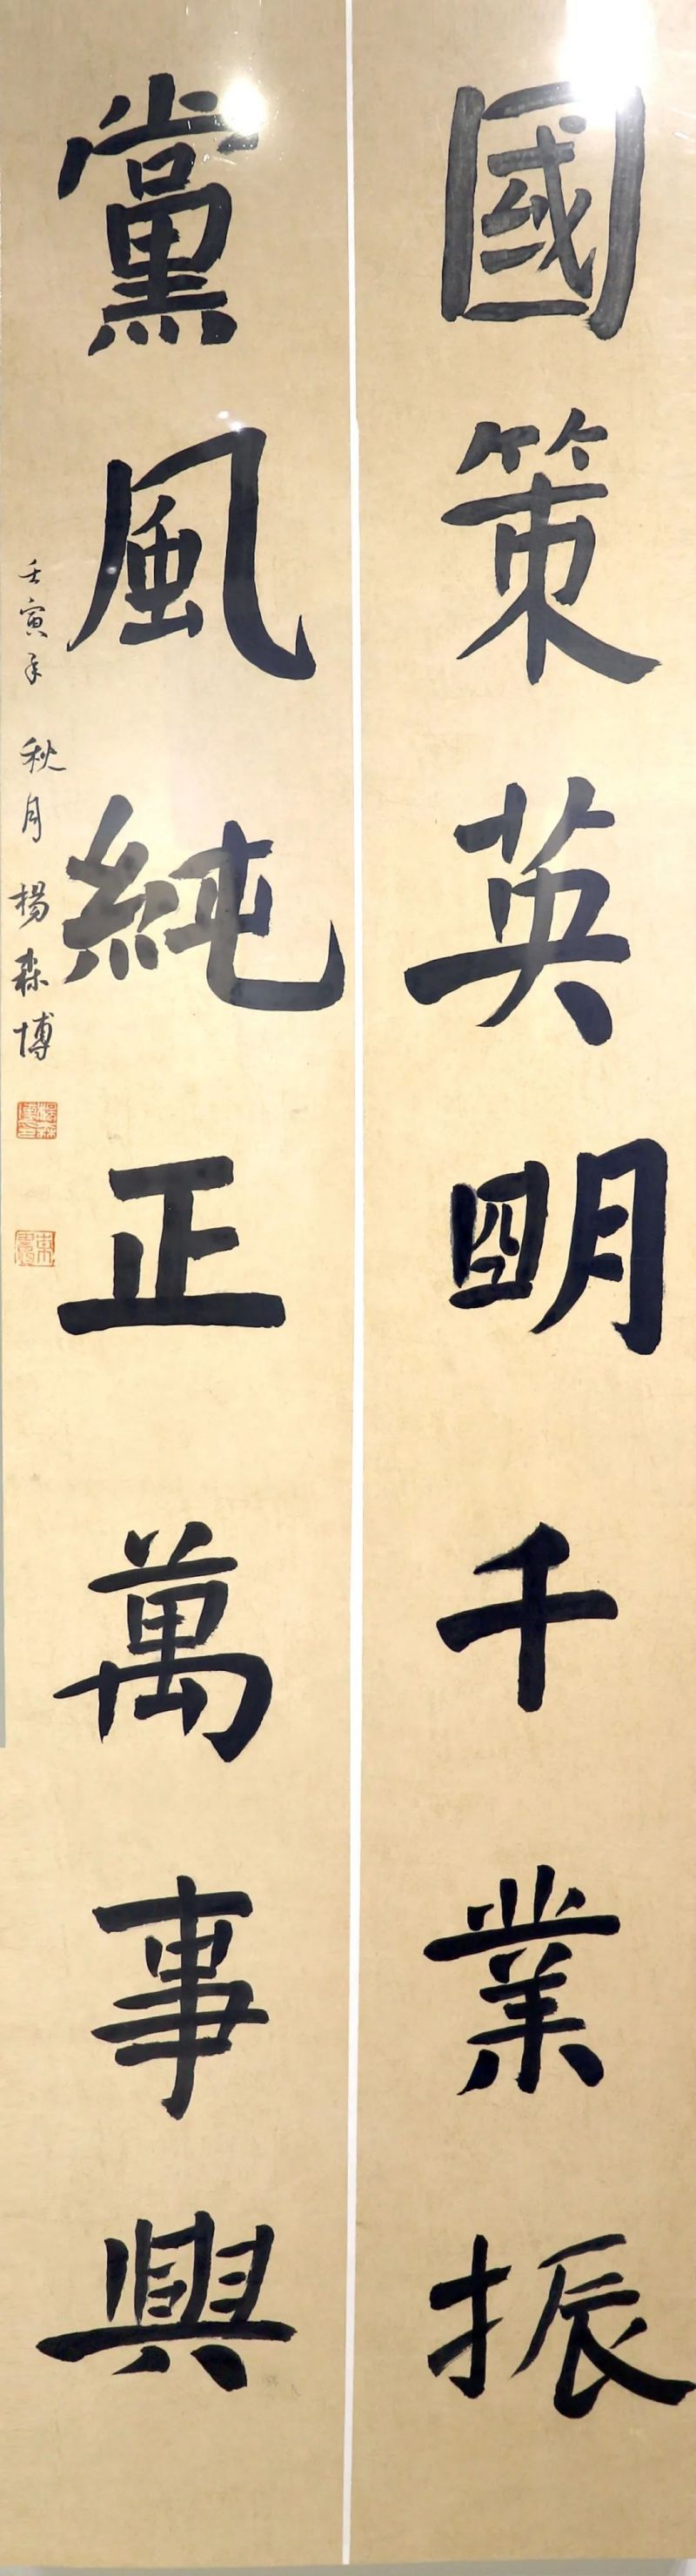 國策英明千業振
黨風純正萬事興
壬寅年 秋月 楊森博